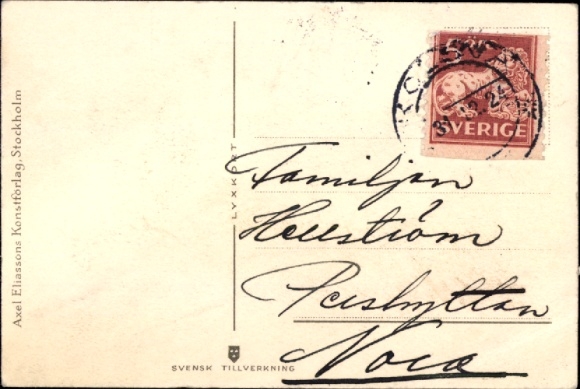 Axel Eliassons Konstförlag, Stockholm
LYXKORT
SVENSK TILLVERKNING
SVERIGE
31.12.24
Familjen
Hellström
Pershyttan
Nora